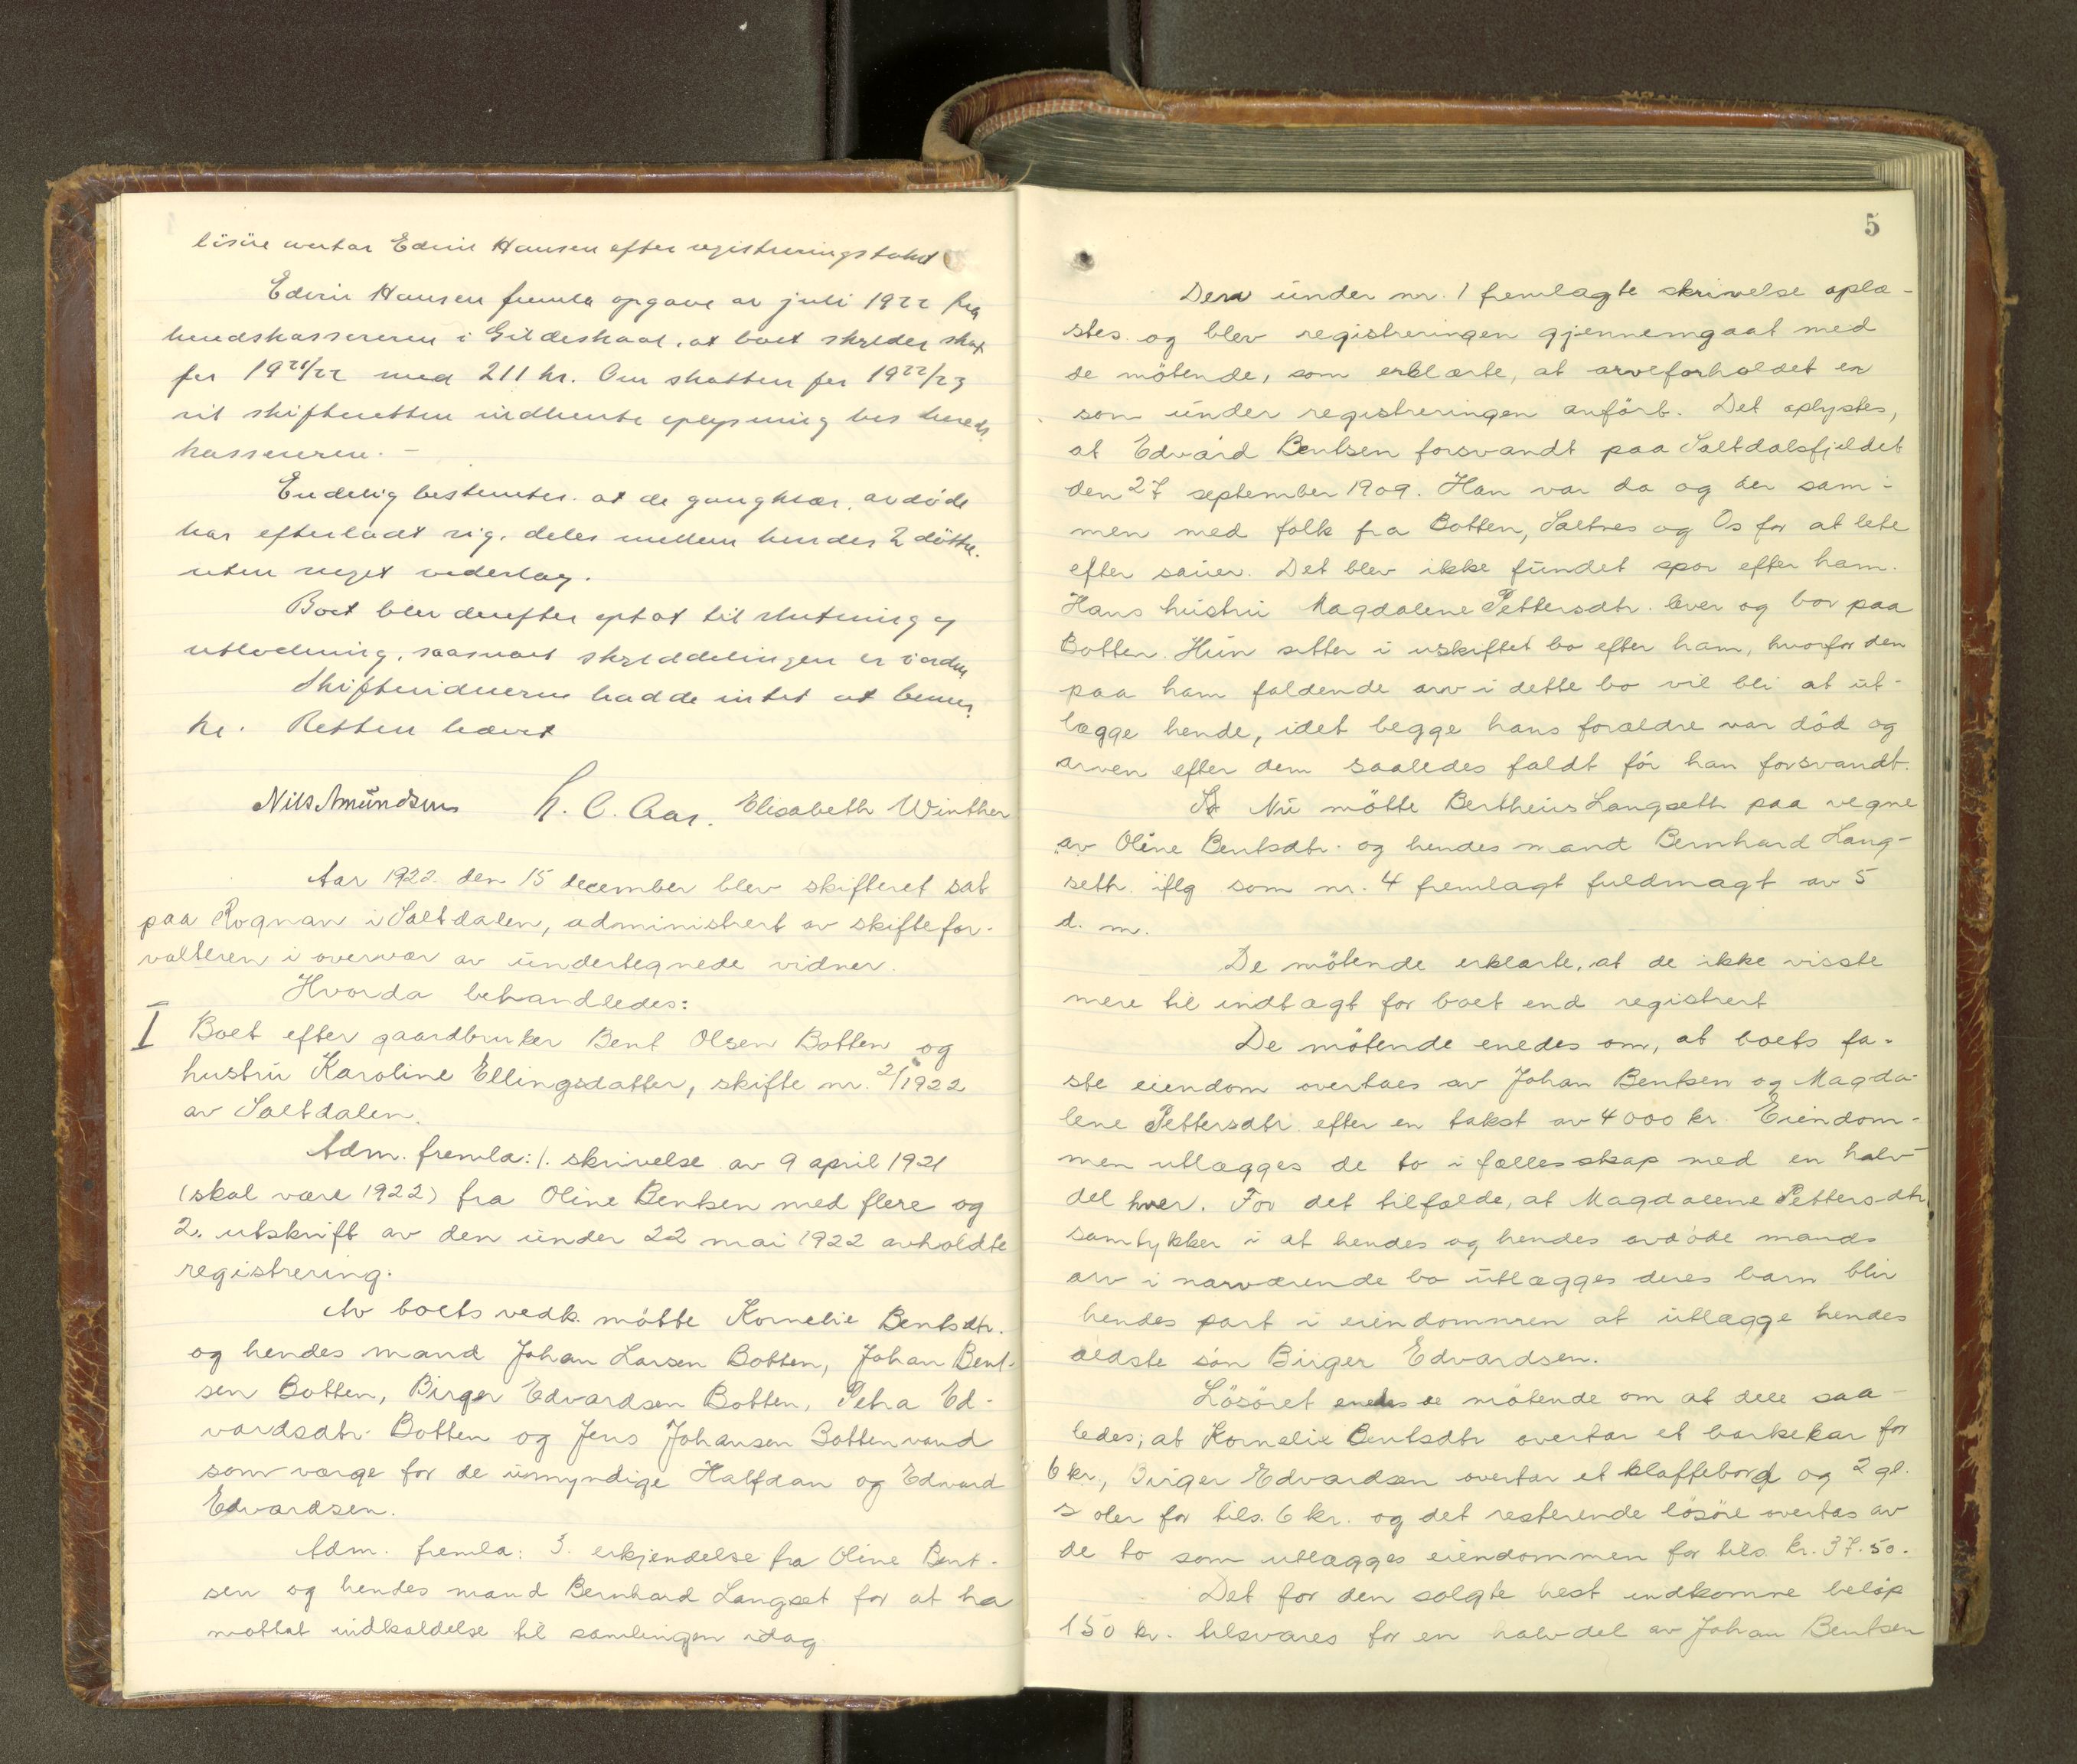 løsøre avertar Edvin Hansen efter registreringstakst
Edvin Hansen fremla opgave av juli 1922 fra
heredskassereren i Gildeskaal, at boet skylder skat
for 1921/22 med 211 kr. Om skatten for 1922/23
vil skifteretten indhente oplysning hos hereds
kassereren. –
Endelig bestemtes, at de gangklær, avdøde
har efterladt sig, deles mellem hendes 2 døttre
uten noget vederlag.
Boet blev derefter optat til slutning og
utlodning, saasnart skylddelingen er i orden
Skiftevidnerne hadde intet at bemer
ke. Retten hævet
Nils Amundsen H. C. Aas. Elisabeth Winther
Aar 1922 den 15 december blev skifteret sat
paa Rognan i Saltdalen, administrert av skiftefor-
valteren i overvær av undertegnede vidner.
Hvorda behandledes:
I Boet efter gaardbruker Bent Olsen Botten og
hustru Karoline Ellingsdatter, skifte nr. 2/1922
av Saltdalen.
Adm. fremla: 1. skrivelse av 9 april 1921
(skal være 1922) fra Oline Bentsen med flere og
2. utskrift av den under 22 mai 1922 avholdte
registrering.
Av boets vedk. møtte Kornelie Bentsdtr.
og hendes mand Johan Larsen Botten, Johan Bent-
sen Botten, Birger Edvardsen Botten, Petra Ed-
vardsdtr. Botten og Jens Johansen Bottenvand
som værge for de umyndige Halfdan og Edvard
Edvardsen.
Adm. fremla: 3. erkjendelse fra Oline Bent-
sen og hendes mand Bernhard Langset for at ha
mottat indkaldelse til samlingen idag
5
Den under nr. 1 fremlagte skrivelse oplæ-
stes og blev registreringen gjennemgaat med
de møtende, som erklærte, at arveforholdet er
som under registreringen anført. Det oplystes,
at Edvard Bentsen forsvandt paa Saltdalsfjeldet
den 27 september 1909. Han var da og der sam-
men med folk fra Botten, Saltnes og Os for at lete
efter sauer. Det blev ikke fundet spor efter ham.
Hans hustru Magdalene Pettersdtr. lever og bor paa
Botten. Hun sitter i uskiftet bo efter ham, hvorfor den
paa ham faldende arv i dette bo vil bli at ut-
lægge hende, idet begge hans forældre var død og
arven efter dem saaledes faldt før han forsvandt.
Nu møtte Bertheus Langseth paa vegne
av Oline Bentsdtr. og hendes mand Bernhard Lang-
seth iflg som nr. 4 fremlagt fuldmagt av 5
d. m.
De møtende erklærte, at de ikke visste
mere til indtægt for boet end registrert
De møtende enedes om, at boets fa-
ste eiendom overtaes av Johan Bentsen og Magda-
lene Pettersdtr. efter en takst av 4000 kr. Eiendom-
men utlægges de to i fællesskap med en halv-
del hver. For det tilfælde, at Magdalene Pettersdtr.
samtykker i at hendes og hendes avdøde mands
arv i nærværende bo utlægges deres barn blir
hendes part i eiendommen at utlægge hendes
ældste søn Birger Edvardsen.
Løsøret enedes de møtende om at dele saa-
ledes; at Kornelie Bentsdtr overtar et barkekar for
6 kr., Birger Edvardsen overtar et klaffebord og 2 gl.
stoler for tils. 6 kr. og det resterende løsøre overtas av
de to som utlægges eiendommen for tils kr. 37.50.
Det for den solgte hest indkomne beløp
150 kr. tilsvares for en halvdel av Johan Bentsen